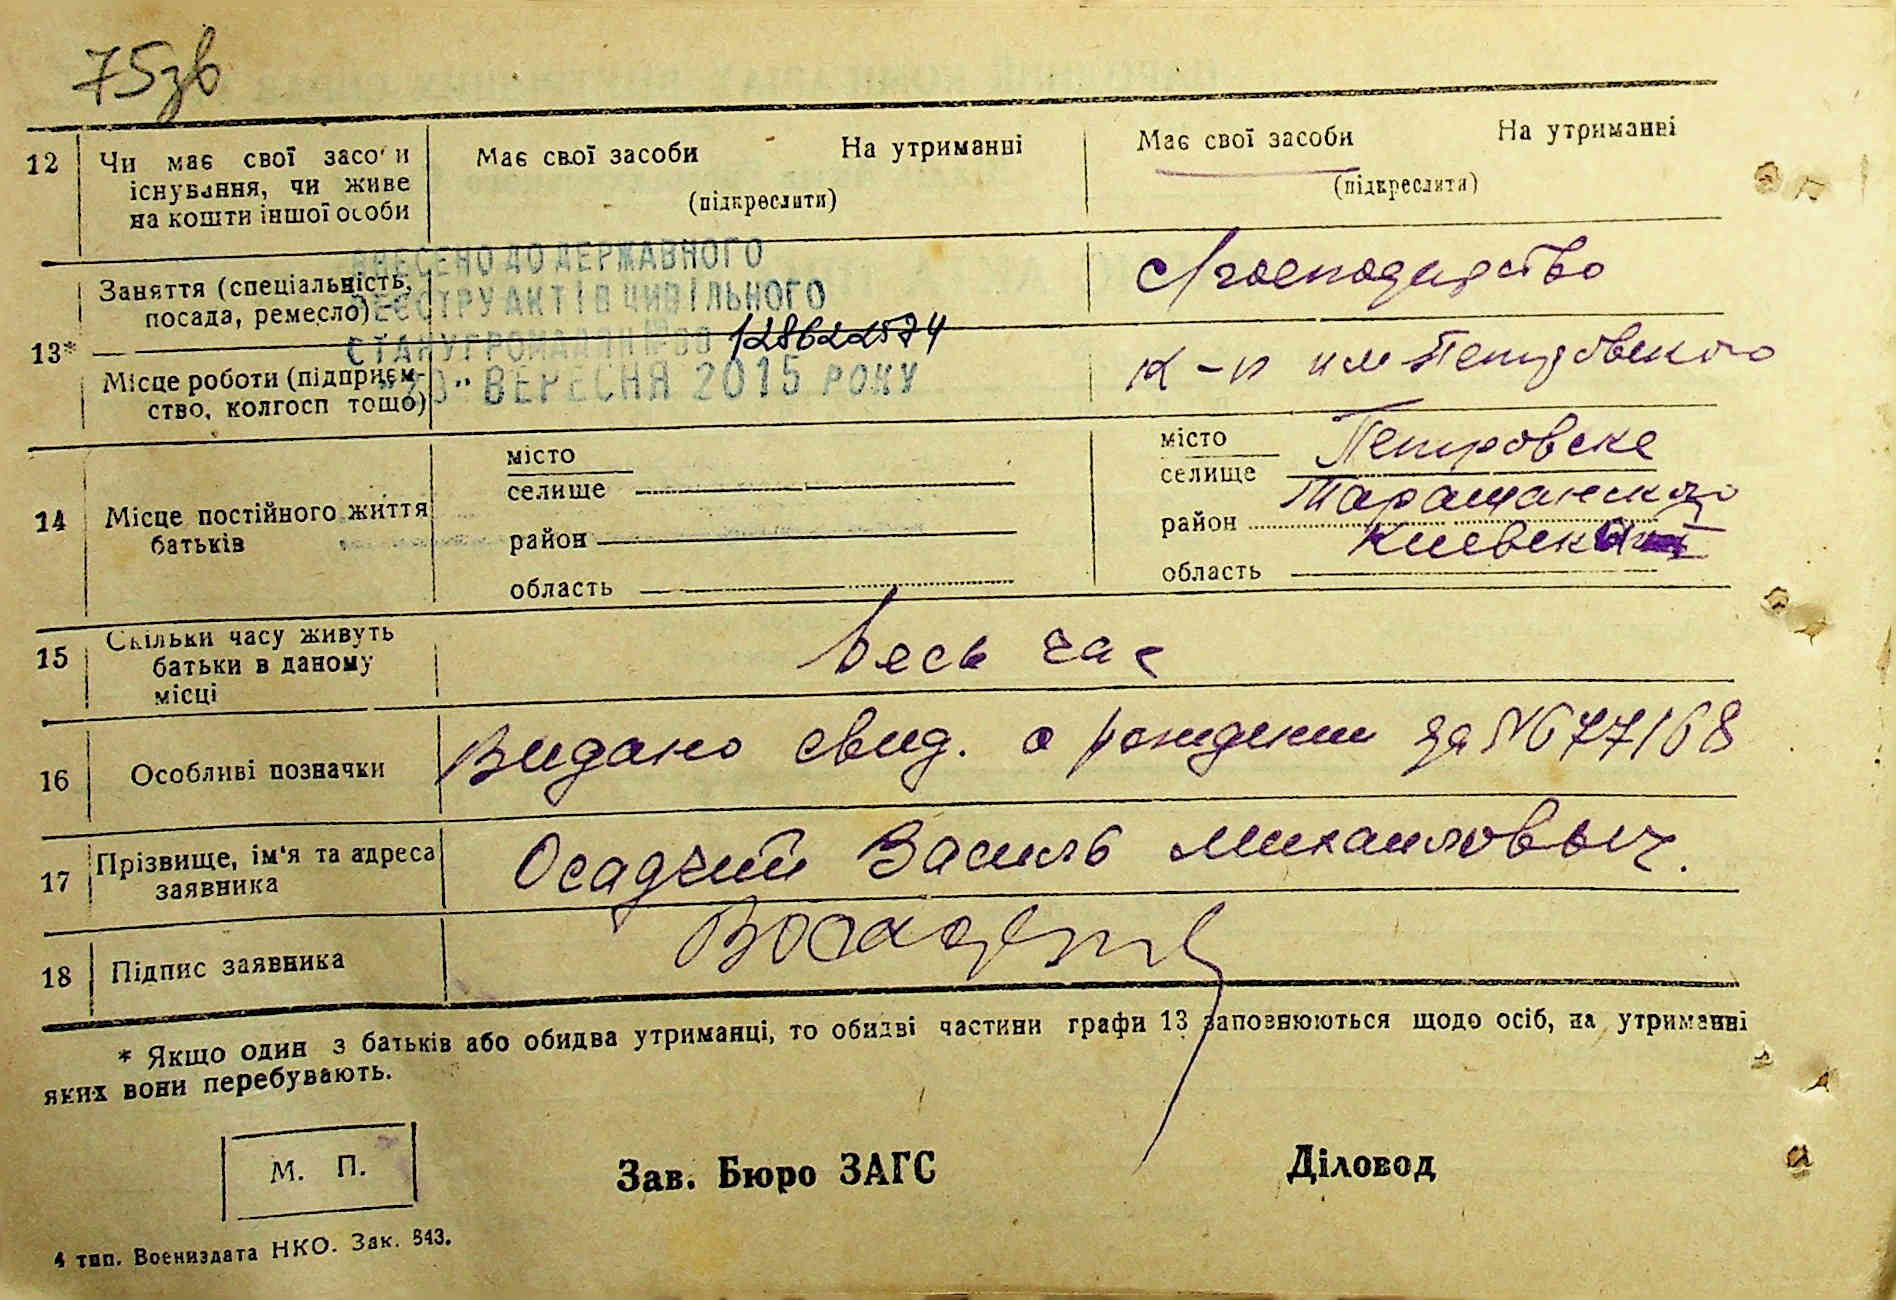 75зв
12 Чи має свої засоби Має свої засоби На утриманні Має свої засоби На утриманні
існування, чи живе (підкреслити) (підкреслити)
на кошти іншої особи
ВНЕСЕНО ДО ДЕРЖАВНОГО
РЕЄСТРУ АКТІВ ЦИВІЛЬНОГО
СТАНУ ГРОМАДЯН № 00 128622574
ВЕРЕСНЯ 2015 РОКУ
13* Заняття (спеціальність, с/господарство
посада, ремесло)
Місце роботи (підприєм- к-п им Петровского
ство, колгосп тощо)
14 Місце постійного життя
батьків
місто
селище
район
область
місто
селище Петровске
район Таращанского
область
15 Скільки часу живуть
батьки в даному Весь час
місці
16 Особливі позначки Видано свид. о рождении за №677/68
17 Прізвище, ім'я та адреса Осадчий Василь Михаилович.
заявника
18 Підпис заявника
* Якщо один з батьків або обидва утриманці, то обидві частини графи 13 заповнюються щодо осіб, на утриманні
яких вони перебувають.
М. П.
Зав. Бюро ЗАГС Діловод
4 тип. Воениздата НКО. Зак. 843.